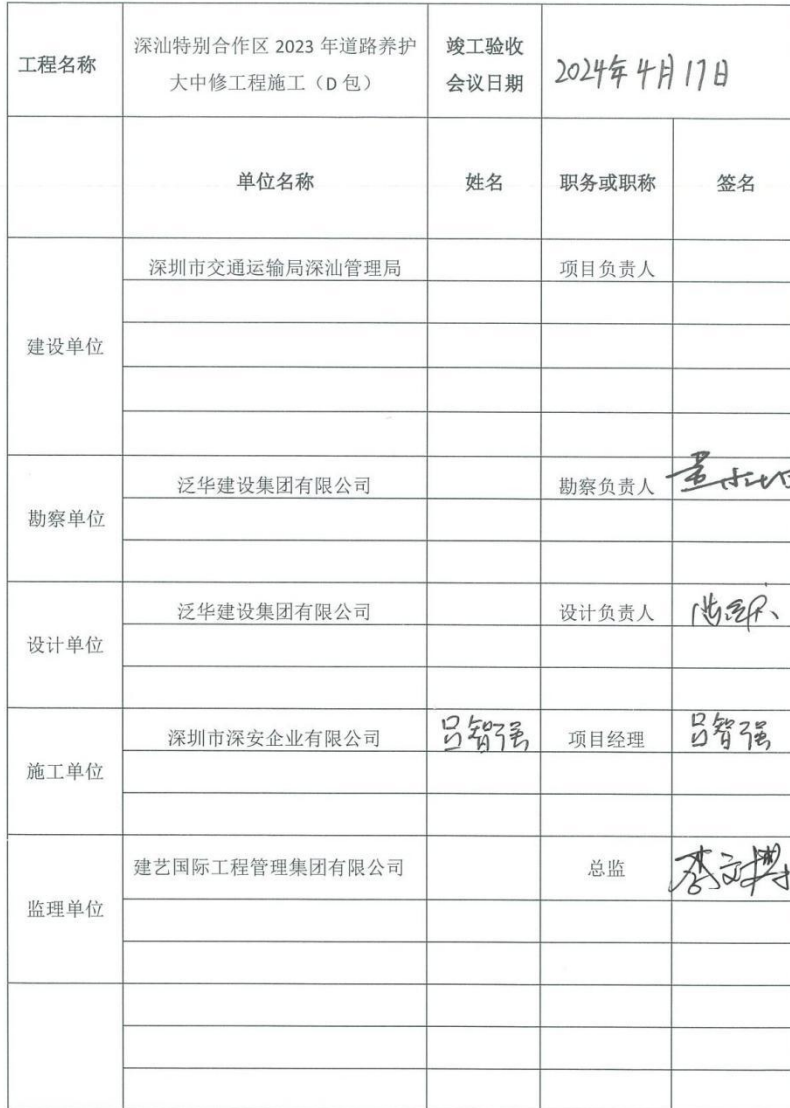 工程名称
深汕特别合作区 2023 年道路养护
大中修工程施工（D 包）
竣工验收
会议日期
2024年4月17日
单位名称
姓名
职务或职称
签名
建设单位
深圳市交通运输局深汕管理局
项目负责人
勘察单位
泛华建设集团有限公司
勘察负责人
设计单位
泛华建设集团有限公司
设计负责人
施工单位
深圳市深安企业有限公司
吕智强
项目经理
吕智强
监理单位
建艺国际工程管理集团有限公司
总监